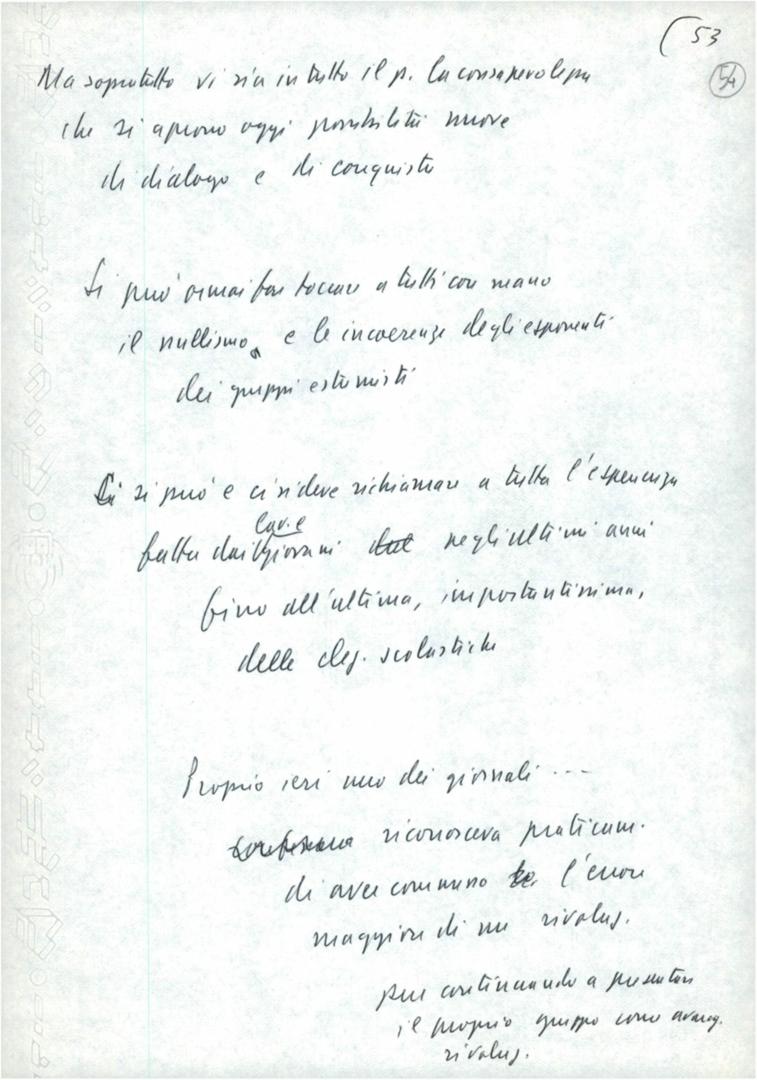 53
54
Ma soprattutto vi sia in tutto il p. la consapevolezza
che si aprono oggi possibilità nuove
di dialogo e di conquista
Si può ormai far toccare a tutti con mano
il nullismo e le incoerenze degli esponenti
dei gruppi estremisti
Ci si può e ci si deve richiamare a tutta l'esperienza
lav. e
fatta dai giovani negli ultimi anni
fino all'ultima, importantissima,
delle elez. scolastiche
Proprio ieri uno dei giornali ...
riconosceva praticam.
di aver commesso l'errore
maggiore di un rivoluz.
pur continuando a presentare
il proprio gruppo come avang.
rivoluz.